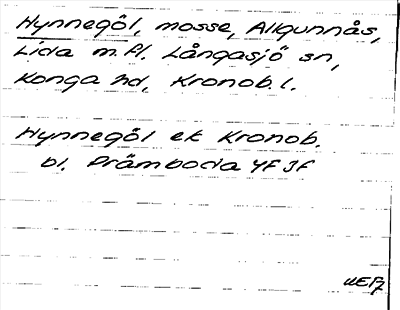 Hynnegöl, mosse, Allgunnås,
Lida m.fl. Långasjö sn,
Konga hd, Kronob. l.
Hynnegöl ek Kronob.
bl. Prämboda 4F 3f